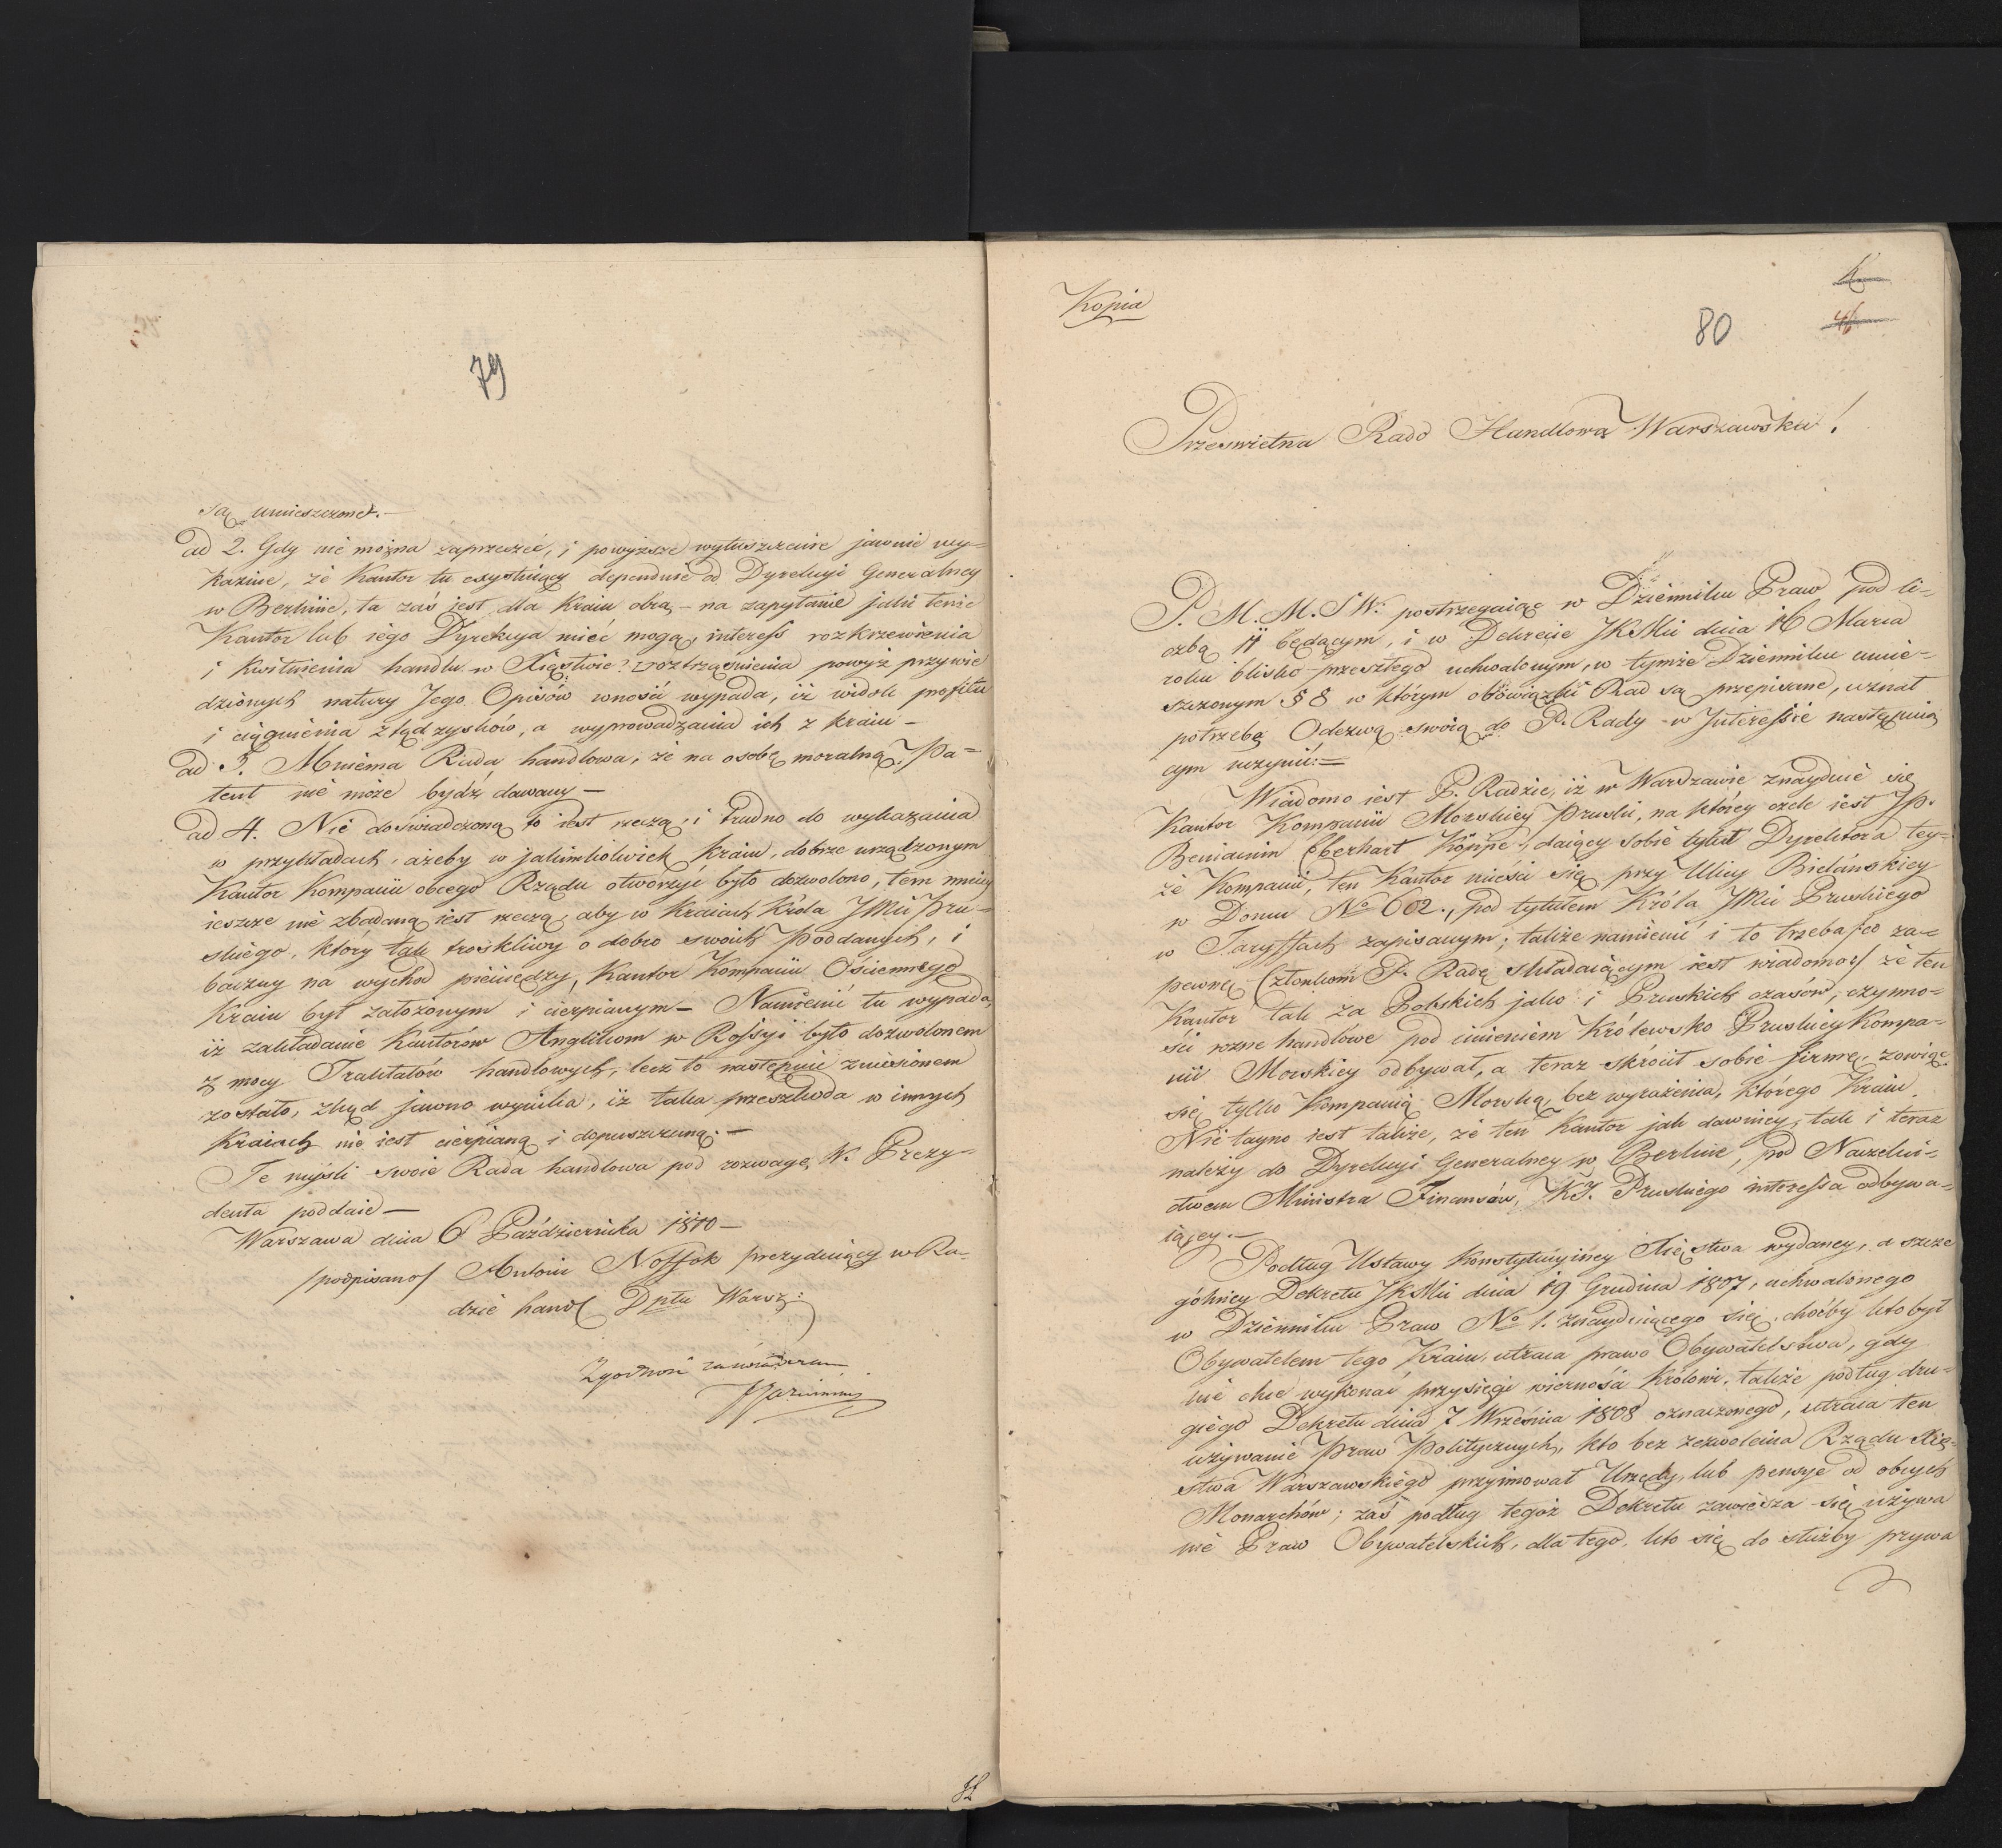 79
są umieszczone.—
ad 2. Gdy nie można zaprzeczeć, i powyższe wyłuszczenie jawnie wy=
każuie, że Kantor tu exystuiący dependuie od Dyrekcyi Generalney
w Berlinie, ta zaś jest dla Kraiu obcą,— na zapytanie jaki tenże
Kantor lub iego Dyrekcya mieć mogą, interess rozkrzewienia
i kwitnienia handlu w Xięstwie? z roztrząśnienia powyż przywie
dzionych natury Jego Opisów wnosić wypada, iż widok profitu
i ciągnienia ztąd zysków, a wyprowadzania ich z kraiu —
ad 3. Mniema Rada handlowa, że na osobę moralną Pa=
tent nie może bydź dawany —
ad 4. Nie doświadczoną to iest rzeczą, i trudno do wykazania
w przykładach, ażeby w jakimkolwiek Kraiu, dobrze urządzonym
Kantor Kompanii obcego Rządu otworzyć było dozwolono, tem mniey
ieszcze nie zbadaną iest rzeczą, aby w Kraiach Króla JMci Pru=
skiego, który tak troskliwy o dobro swoich Poddanych, i
baczny na wychod pieniędzy, Kantor Kompanii Ościennego
Kraiu był założonym i cierpianym — Namienić tu wypada,
iż zakładanie Kantorów Anglikom w Rossyi było dozwolonem
z mocy Traktatów handlowych, lecz to następnie zniesionem
zostało, zkąd jawno wynika, iż taka przeszkoda w innych
Kraiach nie iest cierpianą i dopuszczoną.—
Te myśli swoie Rada handlowa pod rozwagę W. Prezy=
denta poddaie —
Warszawa dnia 6 Października 1810 —
/podpisano/ Antoni Nossok prezyduiący w Ra-
dzie handl Dptu Warsz:
Zgodność zaświadczam
Kopia
80
46
Prześwietna Rado Handlowa Warszawska!
P. M. M. S. W. postrzegaiąc w Dzienniku Praw pod li=
czbą 11 będącym, i w Dekrecie JKMci dnia 16 Marca
roku blisko przeszłego uchwalonym, w tymże Dzienniku umie=
szczonym § 8 w którym obowiązki Rad są przepisane, uznał
potrzebę Odezwę swoią do P. Rady w Interessie następuią
cym uczynić:=
Wiadomo iest P. Radzie, iż w Warszawie znayduie się
Kantor Kompanii Morskiey Pruskiey, na którey czele iest JP.
Beniamin Eberhart Köppe, daiący sobie tytuł Dyrektora tey=
że Kompanii, ten Kantor mieści się przy Ulicy Bielańskiey
w Domu No 602., pod tytułem Króla JMci Pruskiego
w Taryffach zapisanym; także namienić i to trzeba /co za=
pewne Członkom P. Radę składaiącym iest wiadomo/ że ten
Kantor tak za Polskich jako i Pruskich czasów, czynno=
ści rozne handlowe pod imieniem Królewsko Pruskiey Kompa=
nii Morskiey odbywał, a teraz skrócił sobie firmę, zowiąc
się tylko Kompanią Morską, bez wyrażenia, którego Kraiu.
Nie tayno iest także, że ten Kantor jak dawniey, tak i teraz
należy do Dyrekcyi Generalney w Berlinie, pod Naczelni=
ctwem Ministra Finansów, KJ. Pruskiego interessa odbywa=
iącey.—
Podług Ustawy Konstytucyiney Xięstwa wydaney, a szcze
gólniey Dekretu JKMci dnia 19 Grudnia 1807, uchwalonego
w Dzienniku Praw No 1. znayduiącego się, choćby kto był
Obywatelem tego Kraiu, utraca prawo Obywatelstwa, gdy
nie chce wykonać przysięgi wierności Królowi, także podług dru=
giego Dekretu dnia 7 Września 1808 oznaczonego, utraca ten
używanie Praw Politycznych, kto bez zezwolenia Rządu Xię=
stwa Warszawskiego przyimował Urzędy, lub pensye od obcych
Monarchów; zaś podług tegoż Dekretu zawiesza się używa
nie Praw Obywatelskich, dla tego, kto się do służby prywa